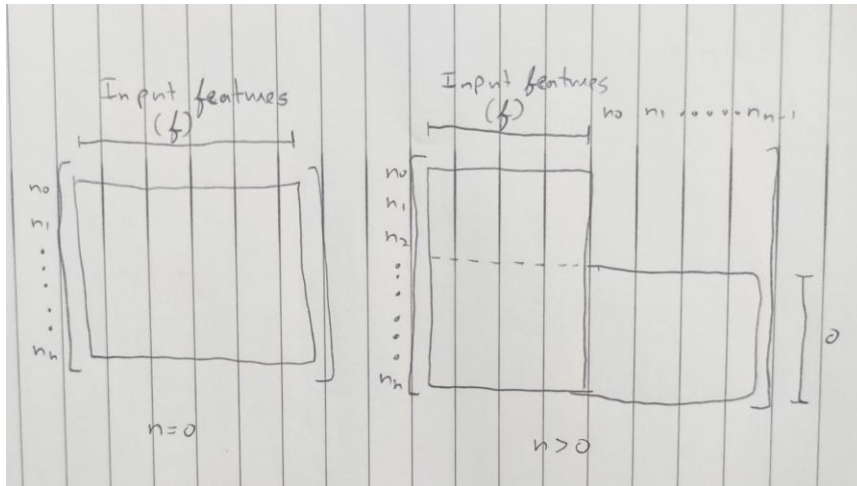 Input features
(f)
n0
n1
.
.
.
.
.
nn
n=0
Input features
(f)
n0 n1 ...... nn-1
n0
n1
n2
.
.
.
.
.
.
nn
0
n>0